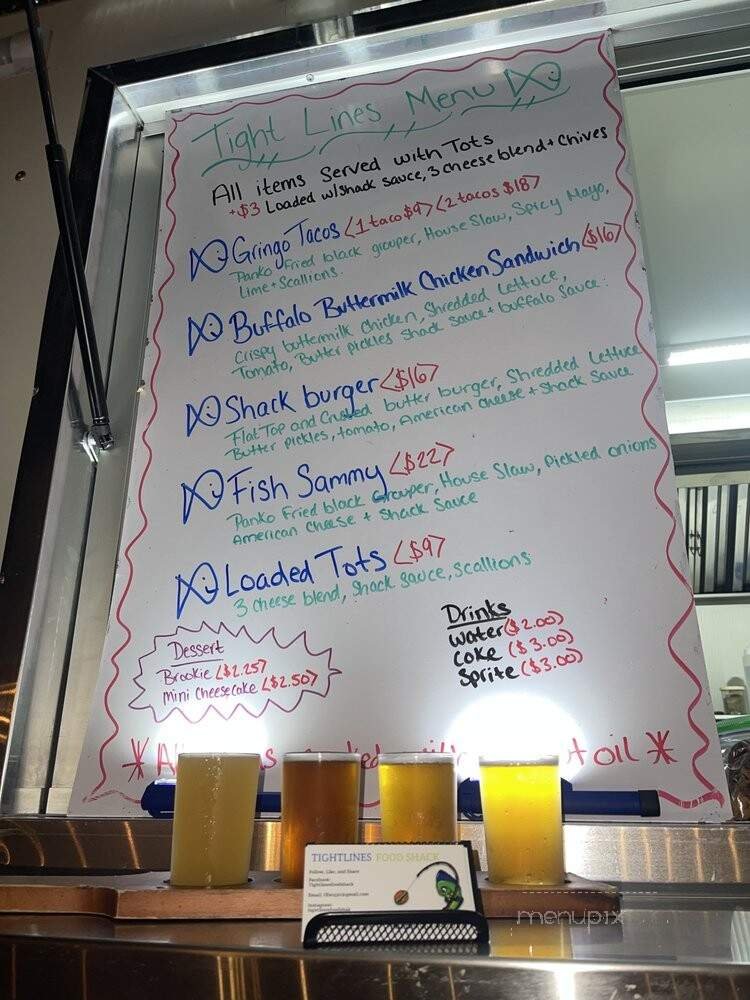 Tight Lines Menu
All items Served with Tots
+$3 Loaded w/shack sauce, 3 cheese blend + Chives
Gringo Tacos <1 taco $9> <2 tacos $18>
Panko Fried black grouper, House Slaw, Spicy Mayo,
Lime + Scallions.
Buffalo Buttermilk Chicken Sandwich <$16>
Crispy buttermilk chicken, Shredded Lettuce,
Tomato, Butter pickles Shack Sauce + buffalo Sauce.
Shack burger <$16>
Flat Top and Crusted butter burger, Shredded Lettuce
Butter pickles, tomato, American cheese + Shack Sauce
Fish Sammy <$22>
Panko Fried black Grouper, House Slaw, Pickled onions
American Cheese + Shack Sauce
Loaded Tots <$9>
3 cheese blend, Shack sauce, Scallions
Dessert
Brookie <$2.25>
mini Cheesecake <$2.50>
Drinks
water ($2.00)
Coke ($3.00)
Sprite ($3.00)
oil
TIGHTLINES FOOD SHACK
Follow, Like, and Share
Facebook:
Tightlinesfoodshack
Instagram:
menupix